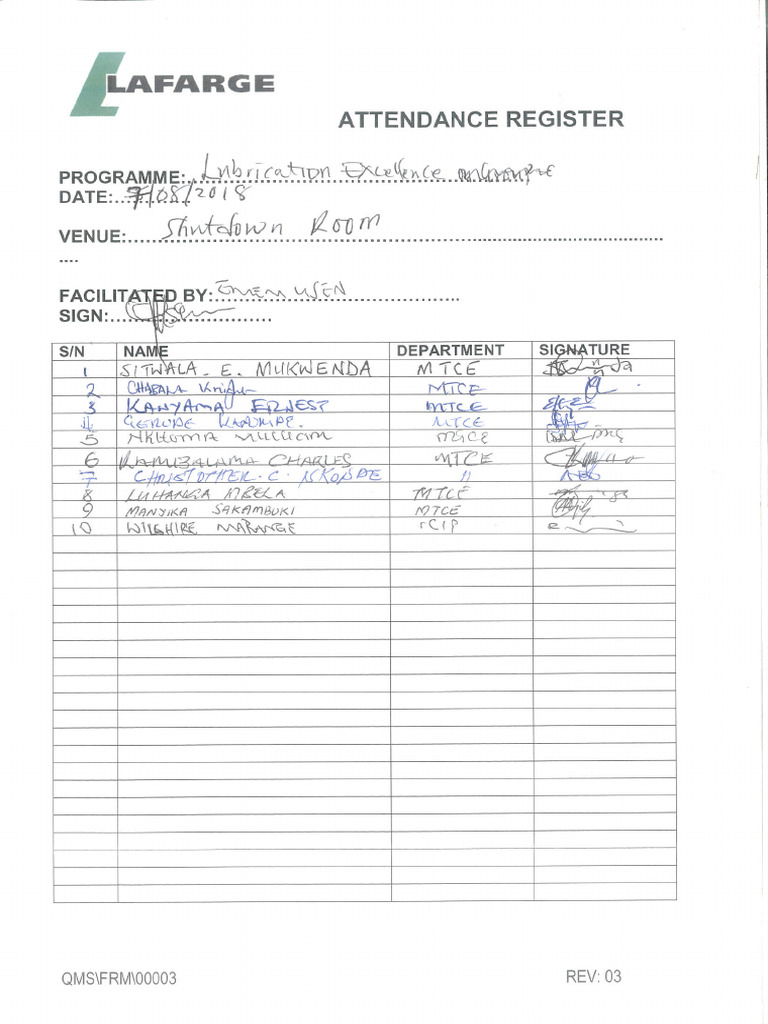 LAFARGE
ATTENDANCE REGISTER
PROGRAMME: Lubrication Excellence
DATE: 7/08/2018
VENUE: Shutdown Room
FACILITATED BY: Emem Usen
SIGN:
S/N NAME DEPARTMENT SIGNATURE
1 SITWALA. E. MUKWENDA MTCE
2 CHABALA MTCE
3 KANYAMA ERNEST MTCE
4 MTCE
5 NKHOMA MTCE
6 CHARLES MTCE
7 CHRISTOPHER. C. NKONDE "
8 LUHANGA MBELA MTCE
9 MANYIKA SAKAMBUKI MTCE
10 WILSHIRE MARANGE rCIP
QMS\FRM\00003 REV: 03